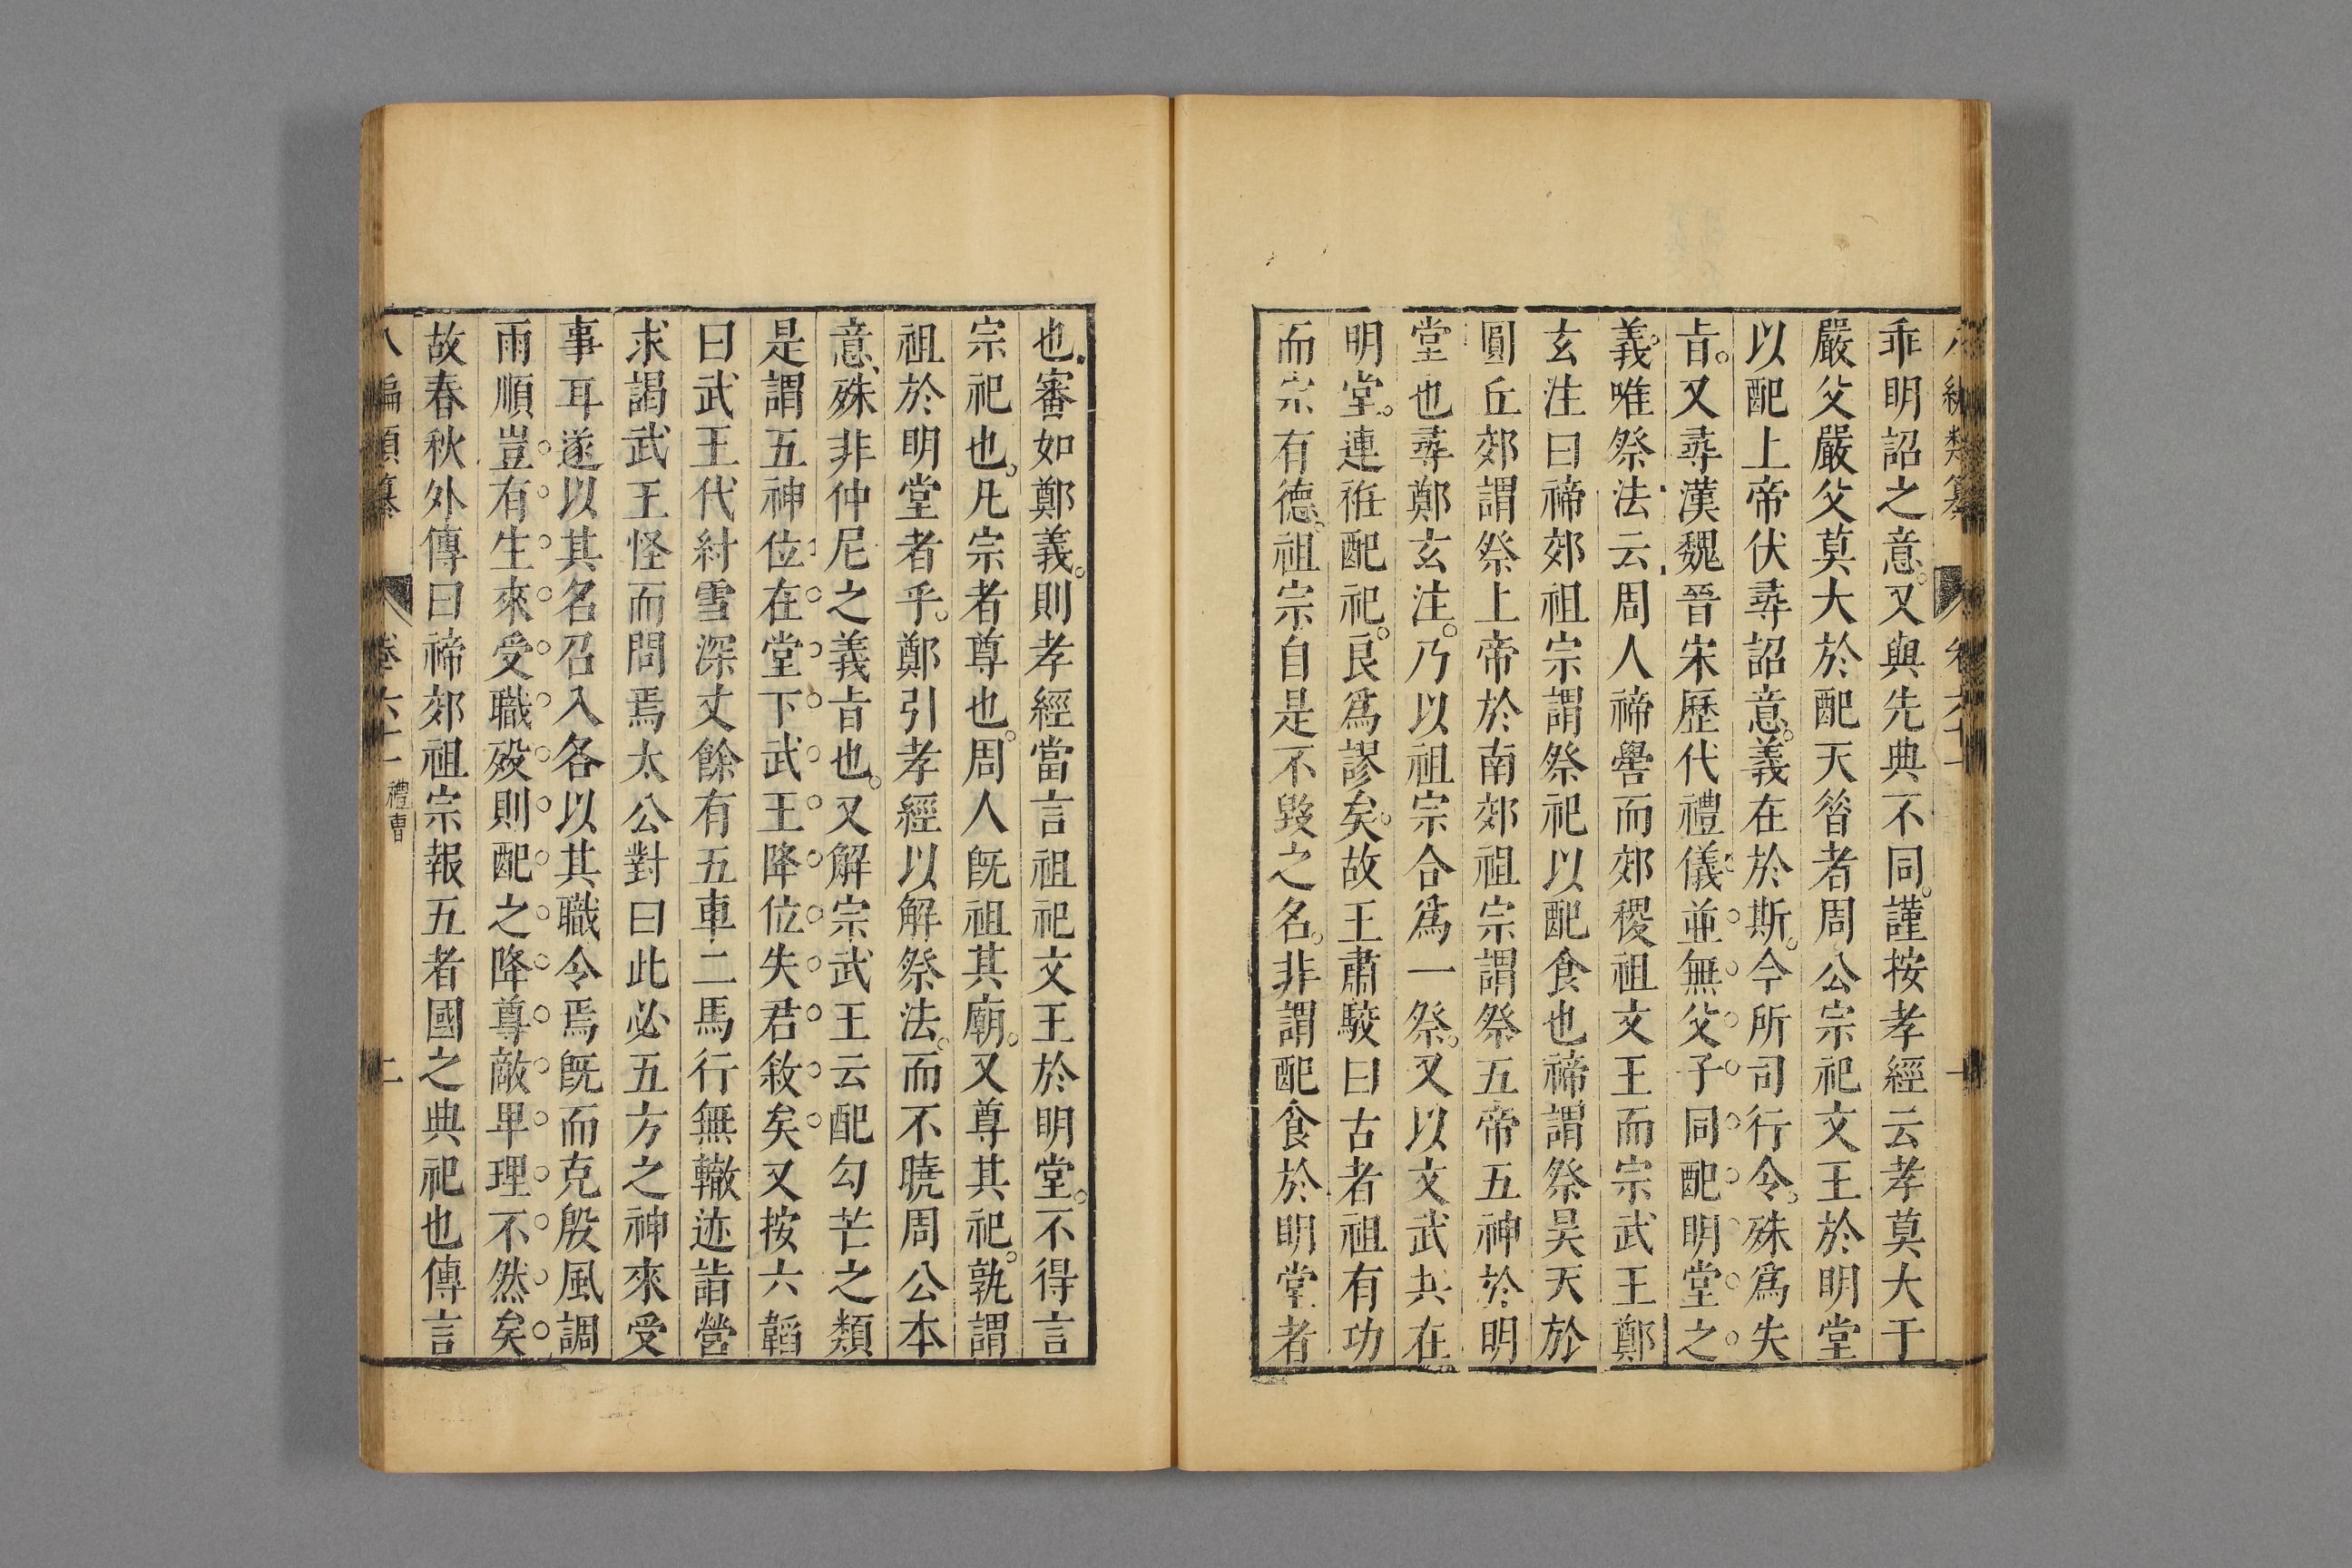 乖明詔之意又與先典不同謹按孝經云孝莫大于
嚴父嚴父莫大於配天昝者周公宗祀文王於明堂
以配上帝伏尋詔意義在於斯今所司行令殊爲失
㫖又尋漢魏晉宋歷代禮儀並無父子同配明堂之
義唯祭法云周人禘嚳而郊稷祖文王而宗武王鄭
玄注曰禘郊祖宗謂祭祀以配食也禘謂祭昊天於
圓丘郊謂祭上帝於南郊祖宗謂祭五帝五神於明
堂也尋鄭玄注乃以祖宗合爲一祭又以文武共在
明堂連袵配祀良爲謬矣故王肅駁曰古者祖有功
而宗有德祖宗自是不毀之名非謂配食於明堂者
也審如鄭義則孝經當言祖祀文王於明堂不得言
宗祀也凡宗者尊也周人旣祖其廟又尊其祀孰謂
祖於明堂者乎鄭引孝經以解祭法而不曉周公本
意殊非仲尼之義㫖也又解宗武王云配勾芒之類
是謂五神位在堂下武王降位失君敘矣又按六韜
曰武王伐紂雪深丈餘有五車二馬行無轍迹詣營
求謁武王怪而問焉太公對曰此必五方之神來受
事耳遂以其名召入各以其職令焉旣而克殷風調
雨順豈有生來受職歿則配之降尊敵卑理不然矣
故春秋外傳曰禘郊祖宗報五者國之典祀也傳言
八編類纂 卷六十一 禮曹